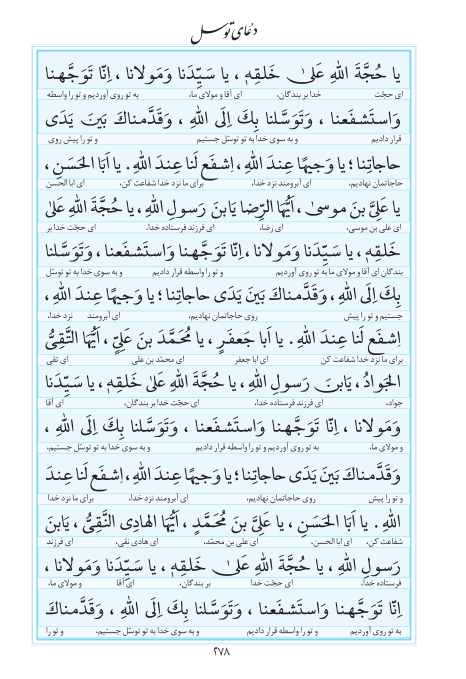 دعای توسل
یا حُجَّةَ اللهِ عَلیٰ خَلقِهِ ، یا سَیِّدَنا وَمَولانا ، اِنّا تَوَجَّهنا
ای حجّت خدا بر بندگان، ای آقا و مولای ما، به تو روی آوردیم و تو را واسطه
وَاستَشفَعنا ، وَتَوَسَّلنا بِكَ اِلَی اللهِ ، وَقَدَّمناكَ بَینَ یَدَی
قرار دادیم و به سوی خدا به تو توسّل جستیم و تو را پیش روی
حاجاتِنا ؛ یا وَجیهًا عِندَ اللهِ، اِشفَع لَنا عِندَ اللهِ. یا اَبَا الحَسَنِ ،
حاجاتمان نهادیم، ای آبرومند نزد خدا، برای ما نزد خدا شفاعت کن، ای ابا الحسن
یا عَلِیَّ بنَ موسیٰ ، اَیُّهَا الرِّضا یَابنَ رَسولِ اللهِ، یا حُجَّةَ اللهِ عَلیٰ
ای علی بن موسی، ای رضا، ای فرزند فرستاده خدا، ای حجّت خدا بر
خَلقِهِ ، یا سَیِّدَنا وَمَولانا ، اِنّا تَوَجَّهنا وَاستَشفَعنا ، وَتَوَسَّلنا
بندگان ای آقا و مولای ما به تو روی آوردیم و تو را واسطه قرار دادیم و به سوی خدا به تو توسّل
بِكَ اِلَی اللهِ ، وَقَدَّمناكَ بَینَ یَدَی حاجاتِنا ؛ یا وَجیهًا عِندَ اللهِ ،
جستیم و تو را پیش روی حاجاتمان نهادیم، ای آبرومند نزد خدا،
اِشفَع لَنا عِندَ اللهِ . یا اَبا جَعفَرٍ ، یا مُحَمَّدَ بنَ عَلِیٍّ ، اَیُّهَا التَّقِیُّ
برای ما نزد خدا شفاعت کن ای ابا جعفر ای محمّد بن علی ای تقی
الجَوادُ، یَابنَ رَسولِ اللهِ، یا حُجَّةَ اللهِ عَلیٰ خَلقِهِ، یا سَیِّدَنا
جواد، ای فرزند فرستاده خدا، ای حجّت خدا بر بندگان، ای آقا
وَمَولانا ، اِنّا تَوَجَّهنا وَاستَشفَعنا ، وَتَوَسَّلنا بِكَ اِلَی اللهِ ،
و مولای ما، به تو روی آوردیم و تو را واسطه قرار دادیم و به سوی خدا به تو توسّل جستیم،
وَقَدَّمناكَ بَینَ یَدَی حاجاتِنا ؛ یا وَجیهًا عِندَ اللهِ، اِشفَع لَنا عِندَ
و تو را پیش روی حاجاتمان نهادیم، ای آبرومند نزد خدا، برای ما نزد خدا
اللهِ . یا اَبَا الحَسَنِ ، یا عَلِیَّ بنَ مُحَمَّدٍ ، اَیُّهَا الهادِی النَّقِیُّ ، یَابنَ
شفاعت کن، ای ابا الحسن، ای علی بن محمّد، ای هادی نقی، ای فرزند
رَسولِ اللهِ ، یا حُجَّةَ اللهِ عَلیٰ خَلقِهِ ، یا سَیِّدَنا وَمَولانا ،
فرستاده خدا، ای حجّت خدا بر بندگان، ای آقا و مولای ما،
اِنّا تَوَجَّهنا وَاستَشفَعنا ، وَتَوَسَّلنا بِكَ اِلَی اللهِ ، وَقَدَّمناكَ
به تو روی آوردیم و تو را واسطه قرار دادیم و به سوی خدا به تو توسّل جستیم، و تو را
۲۷۸